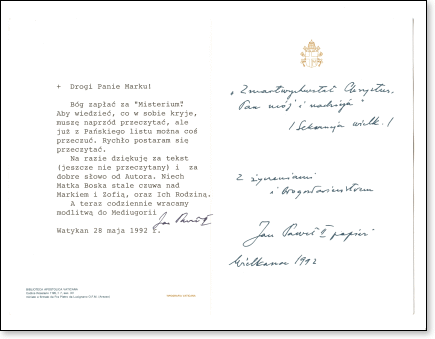 + Drogi Panie Marku!
Bóg zapłać za "Misterium?
Aby wiedzieć, co w sobie kryje,
muszę naprzód przeczytać, ale
już z Pańskiego listu można coś
przeczuć. Rychło postaram się
przeczytać.
Na razie dziękuję za tekst
(jeszcze nie przeczytany) i za
dobre słowo od Autora. Niech
Matka Boska stale czuwa nad
Markiem i Zofią, oraz Ich Rodziną.
A teraz codziennie wracamy
modlitwą do Medjugorii
Jan Paweł II
Watykan 28 maja 1992 r.
"Zmartwychwstał Chrystus,
Pan mój i nadzieja"
/Sekwencja wielk./
Z życzeniami
i błogosławieństwem
Jan Paweł II papież
Wielkanoc 1992